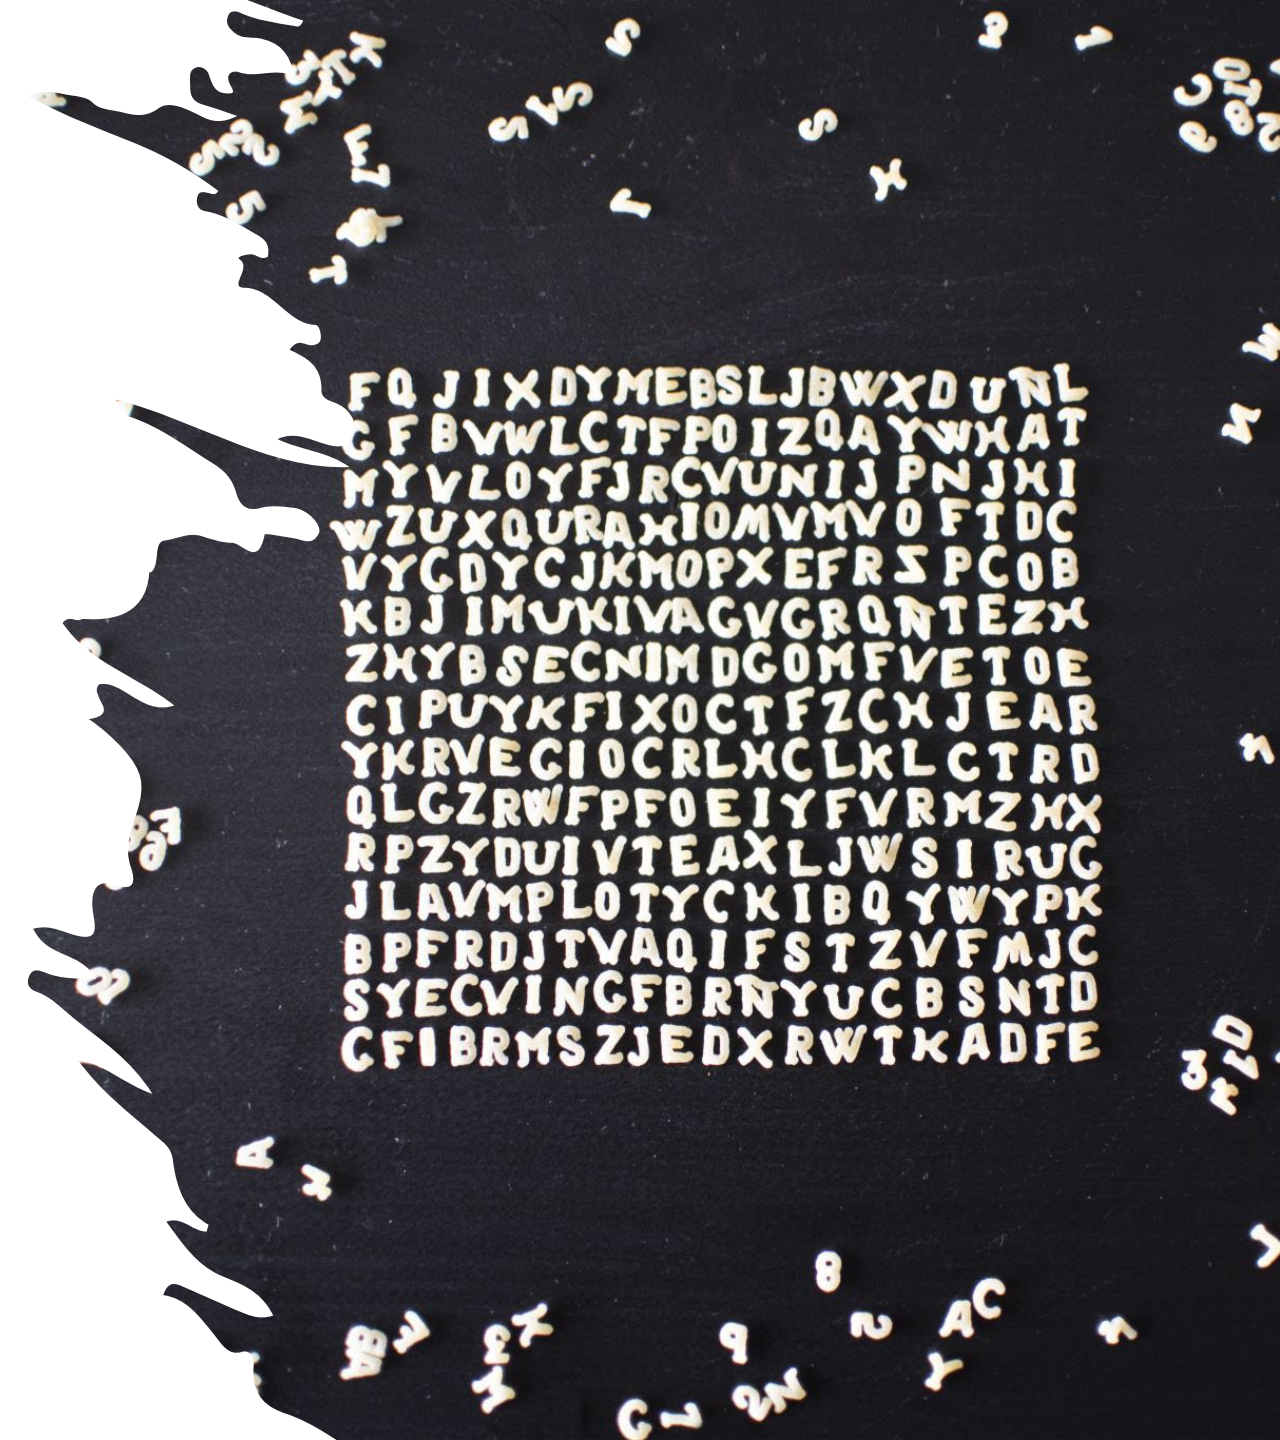 FQJIXDYMEBSLJBWXDUÑL
GFBVWLCTFPOIZQAYWHAT
MYVLOYFJRCVUNIJPNJHI
WZUXQURAHIOMVMVOFTDC
VYGDYCJKMOPXEFRSPCOB
KBJIMUKIVAGVGRQÑTEZH
ZHYBSECNIMDGOMFVETOE
CIPUYKFIXOCTFZCHJEAR
YKRVEGIOCRLHCLKLCTRD
QLGZRWFPFOEIYFVRMZHX
RPZYDUIVTEAXLJWSIRUG
JLAVMPLOTYCKIBQYWYPK
BPFRDJTVAQIFSTZVFMJC
SYECVINGFBRÑYUCBSNTD
GFIBRMSZJEDXRWTKADFE